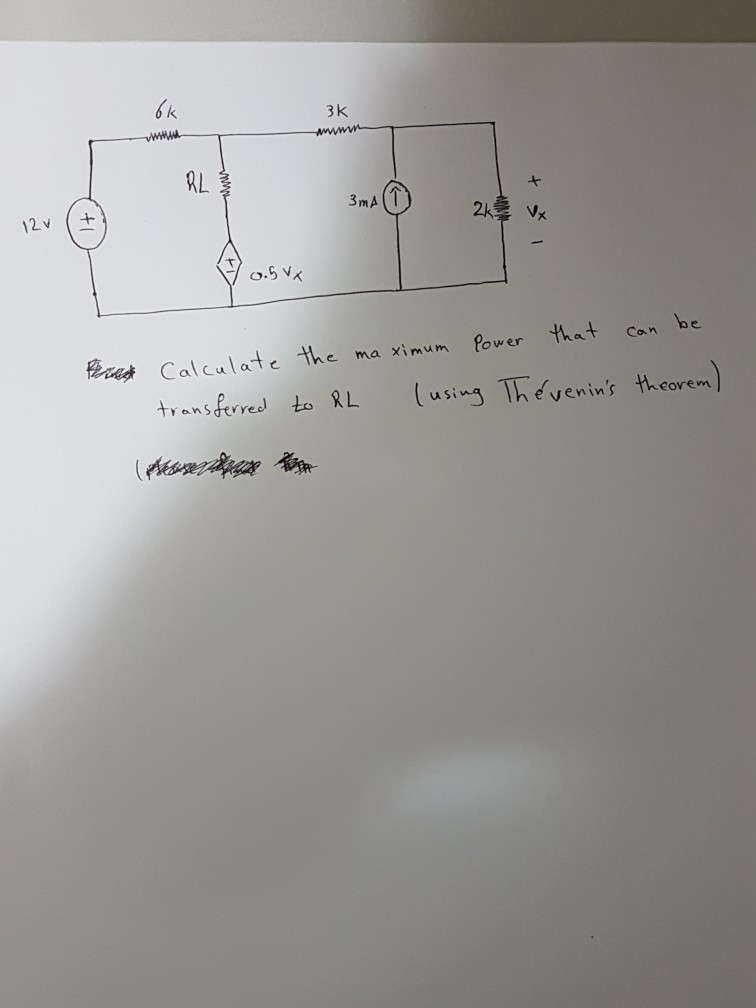 6k 3K
RL
3mA
12v + - 2k + Vx -
+ - 0.5 Vx
Calculate the maximum Power that can be
transferred to RL (using Thévenin's theorem)
(